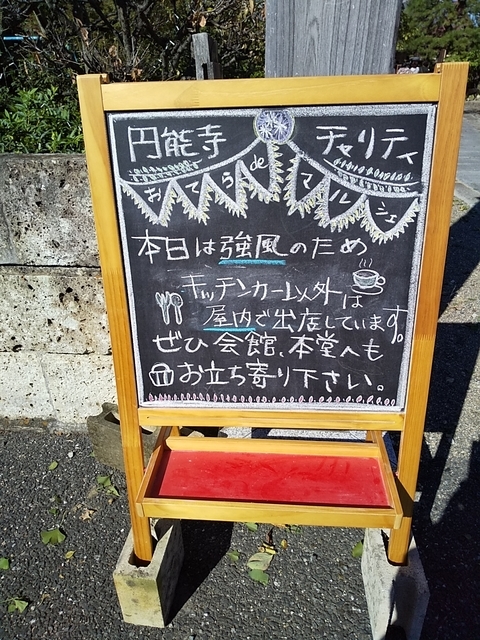 円能寺 チャリティ
おてらdeマルシェ
本日は強風のため
キッチンカー以外は
屋内で出店しています。
ぜひ会館、本堂へも
お立ち寄り下さい。